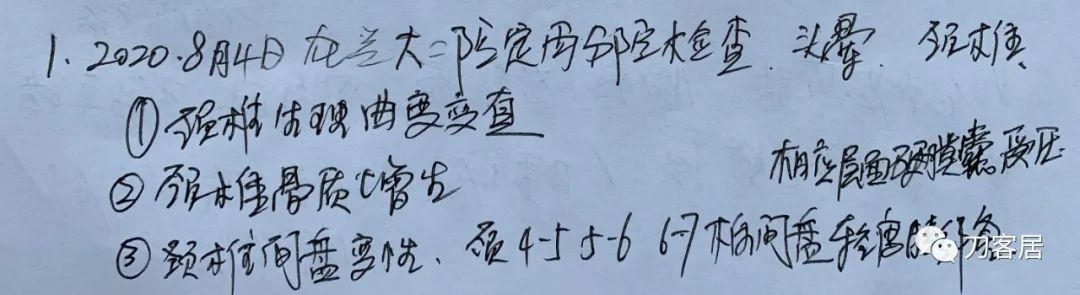 1. 2020.8月4日在兰大二院定西分院检查. 头晕. 颈椎.
①颈椎生理曲度变直
②颈椎骨质增生
相应层面硬膜囊受压
③颈椎间盘变性、颈4-5 5-6 6-7椎间盘轻度
刀客居